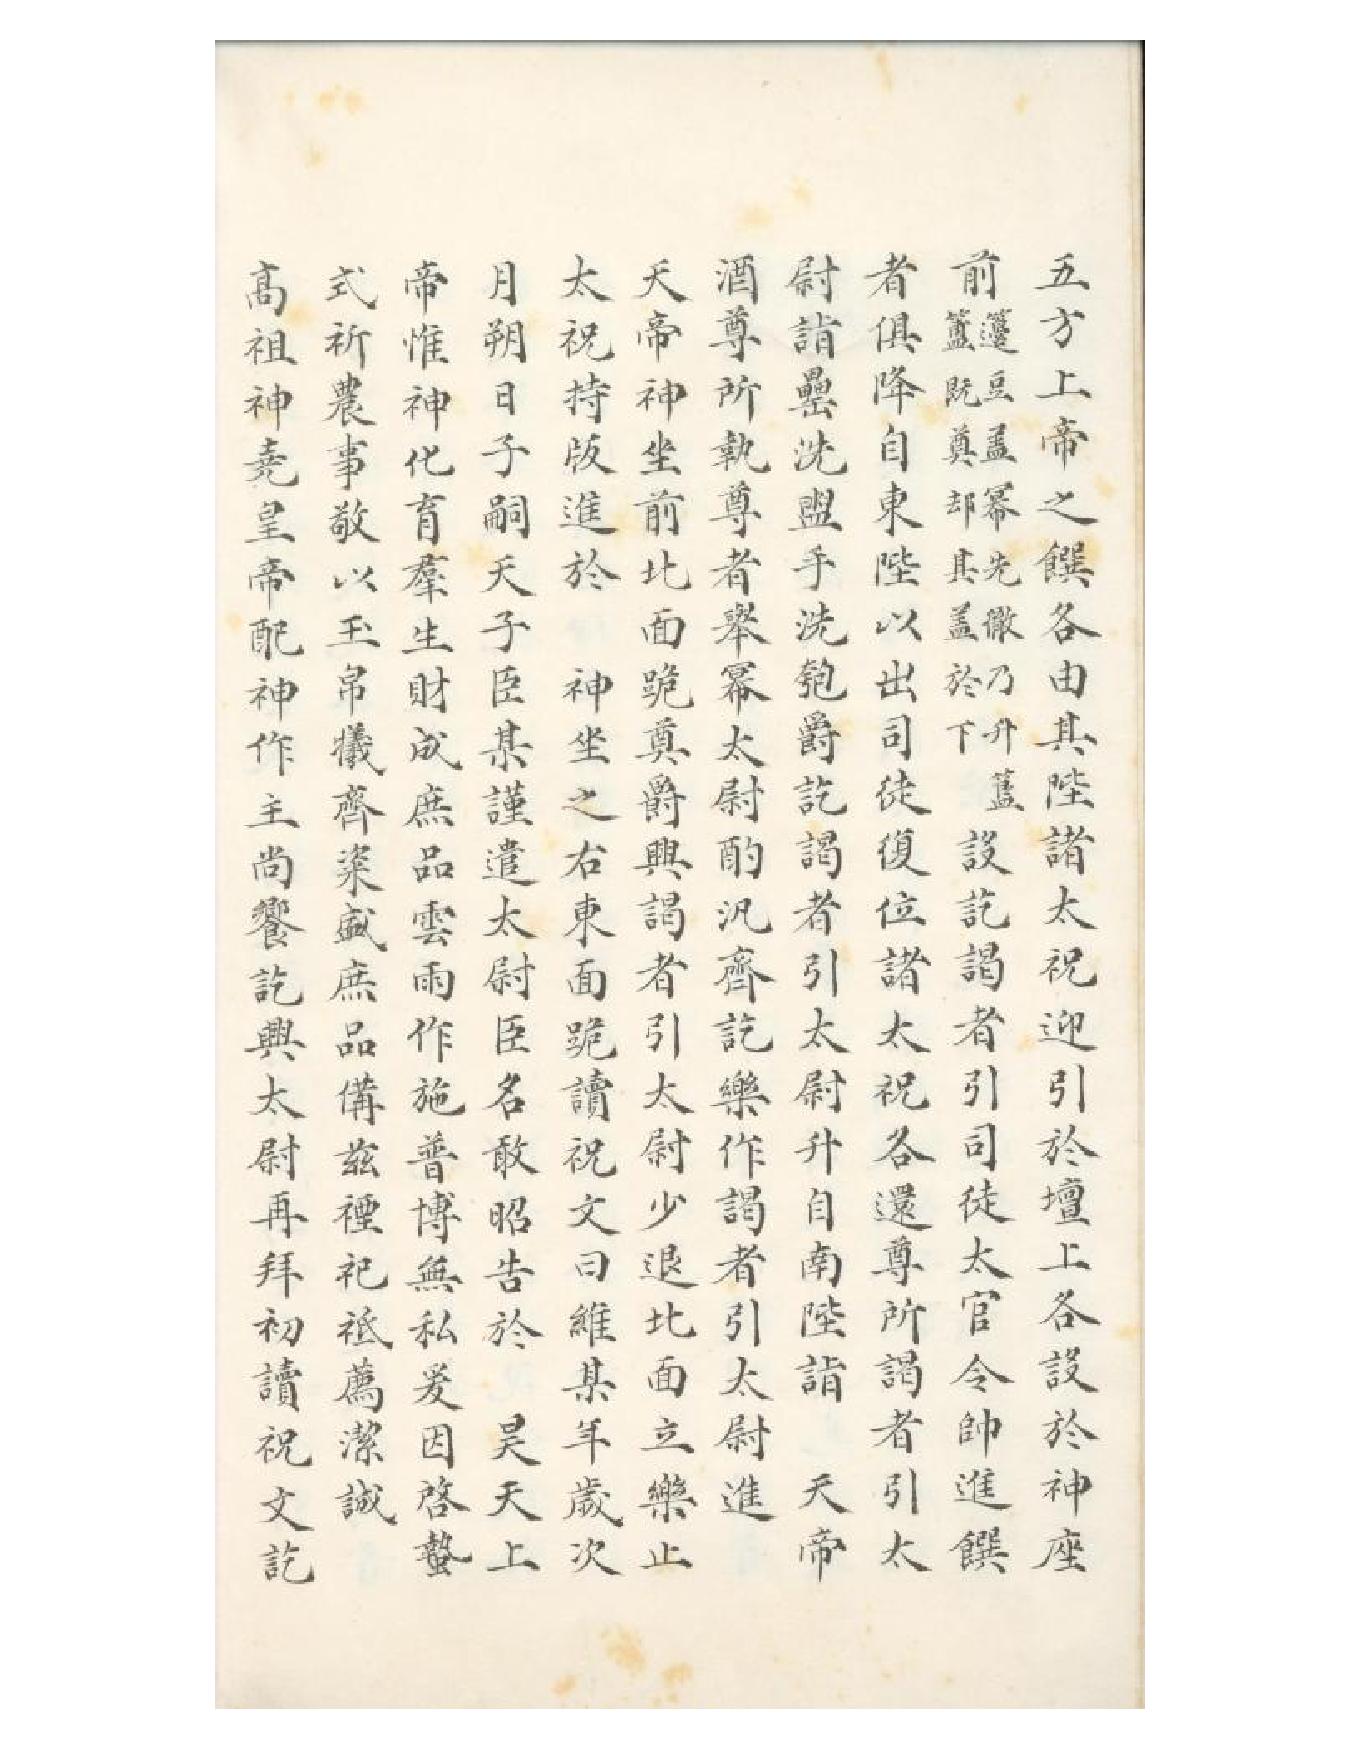 五方上帝之饌各由其陛諸太祝迎引於壇上各設於神座
前籩豆蓋冪先徹乃升簠簋既奠却其蓋於下設訖謁者引司徒太官令帥進饌
者俱降自東陛以出司徒復位諸太祝各還尊所謁者引太
尉詣罍洗盥手洗匏爵訖謁者引太尉升自南陛詣　天帝
酒尊所執尊者舉冪太尉酌汎齊訖樂作謁者引太尉進
天帝神坐前北面跪奠爵興謁者引太尉少退北面立樂止
太祝持版進於　神坐之右東面跪讀祝文曰維某年歲次
月朔日子嗣天子臣某謹遣太尉臣名敢昭告於　昊天上
帝惟神化育羣生財成庶品雲雨作施普博無私爰因啓蟄
式祈農事敬以玉帛犧齊粢盛庶品備茲禋祀祗薦潔誠
高祖神堯皇帝配神作主尚饗訖興太尉再拜初讀祝文訖